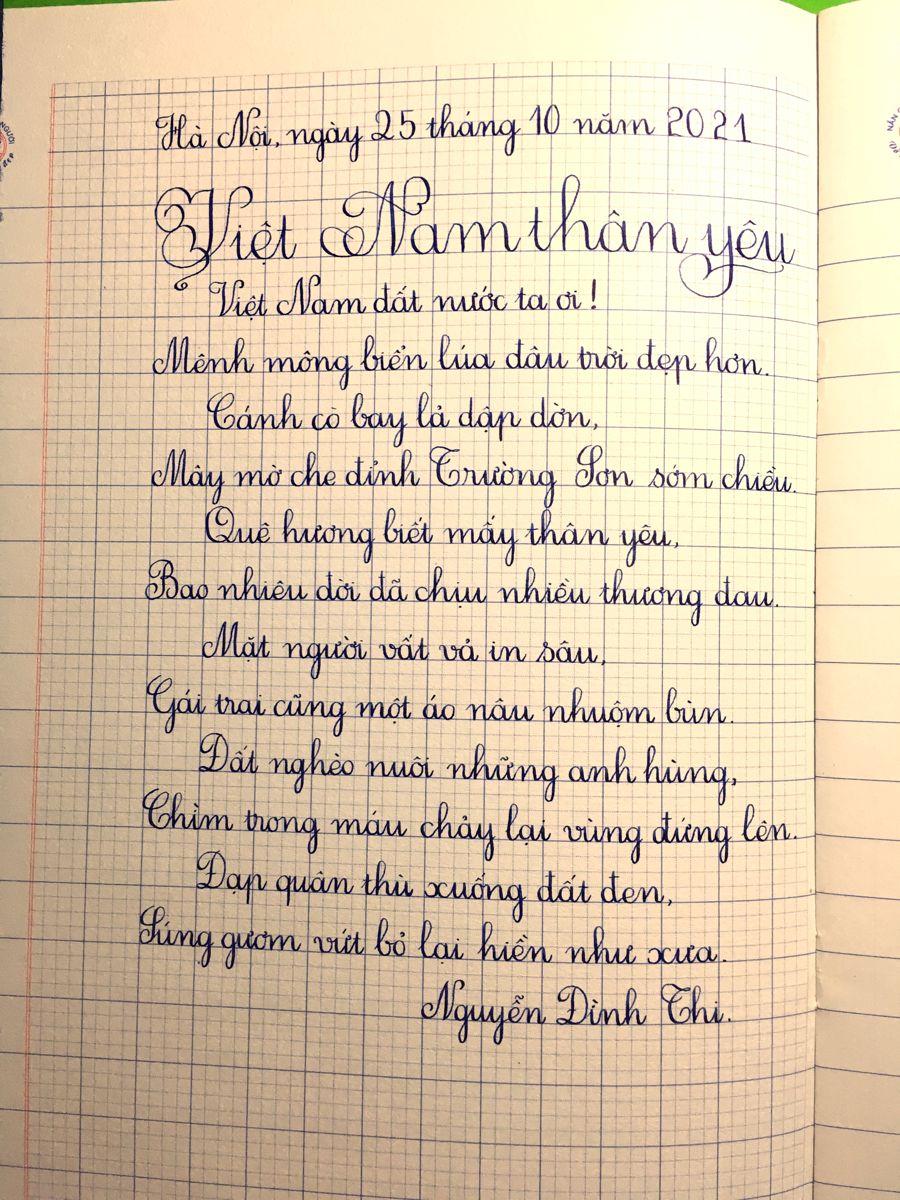 Hà Nội, ngày 25 tháng 10 năm 2021
Việt Nam thân yêu
Việt Nam đất nước ta ơi !
Mênh mông biển lúa đâu trời đẹp hơn.
Cánh cò bay lả dập dờn,
Mây mờ che đỉnh Trường Sơn sớm chiều.
Quê hương biết mấy thân yêu,
Bao nhiêu đời đã chịu nhiều thương đau.
Mặt người vất vả in sâu,
Gái trai cũng một áo nâu nhuộm bùn.
Đất nghèo nuôi những anh hùng,
Chìm trong máu chảy lại vùng đứng lên.
Đạp quân thù xuống đất đen,
Súng gươm vứt bỏ lại hiền như xưa.
Nguyễn Đình Thi.